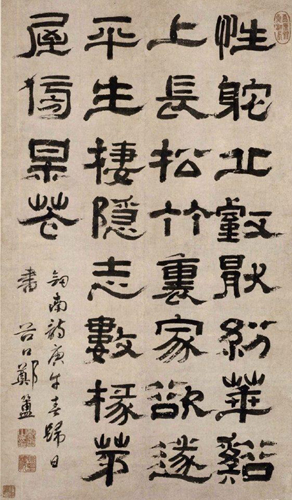 性躭山壑厭紛華谿
上長松竹裏家欲遂
平生棲隱志數椽茅
屋傍某花
劒南詩庚午春歸日
書 谷口鄭簠